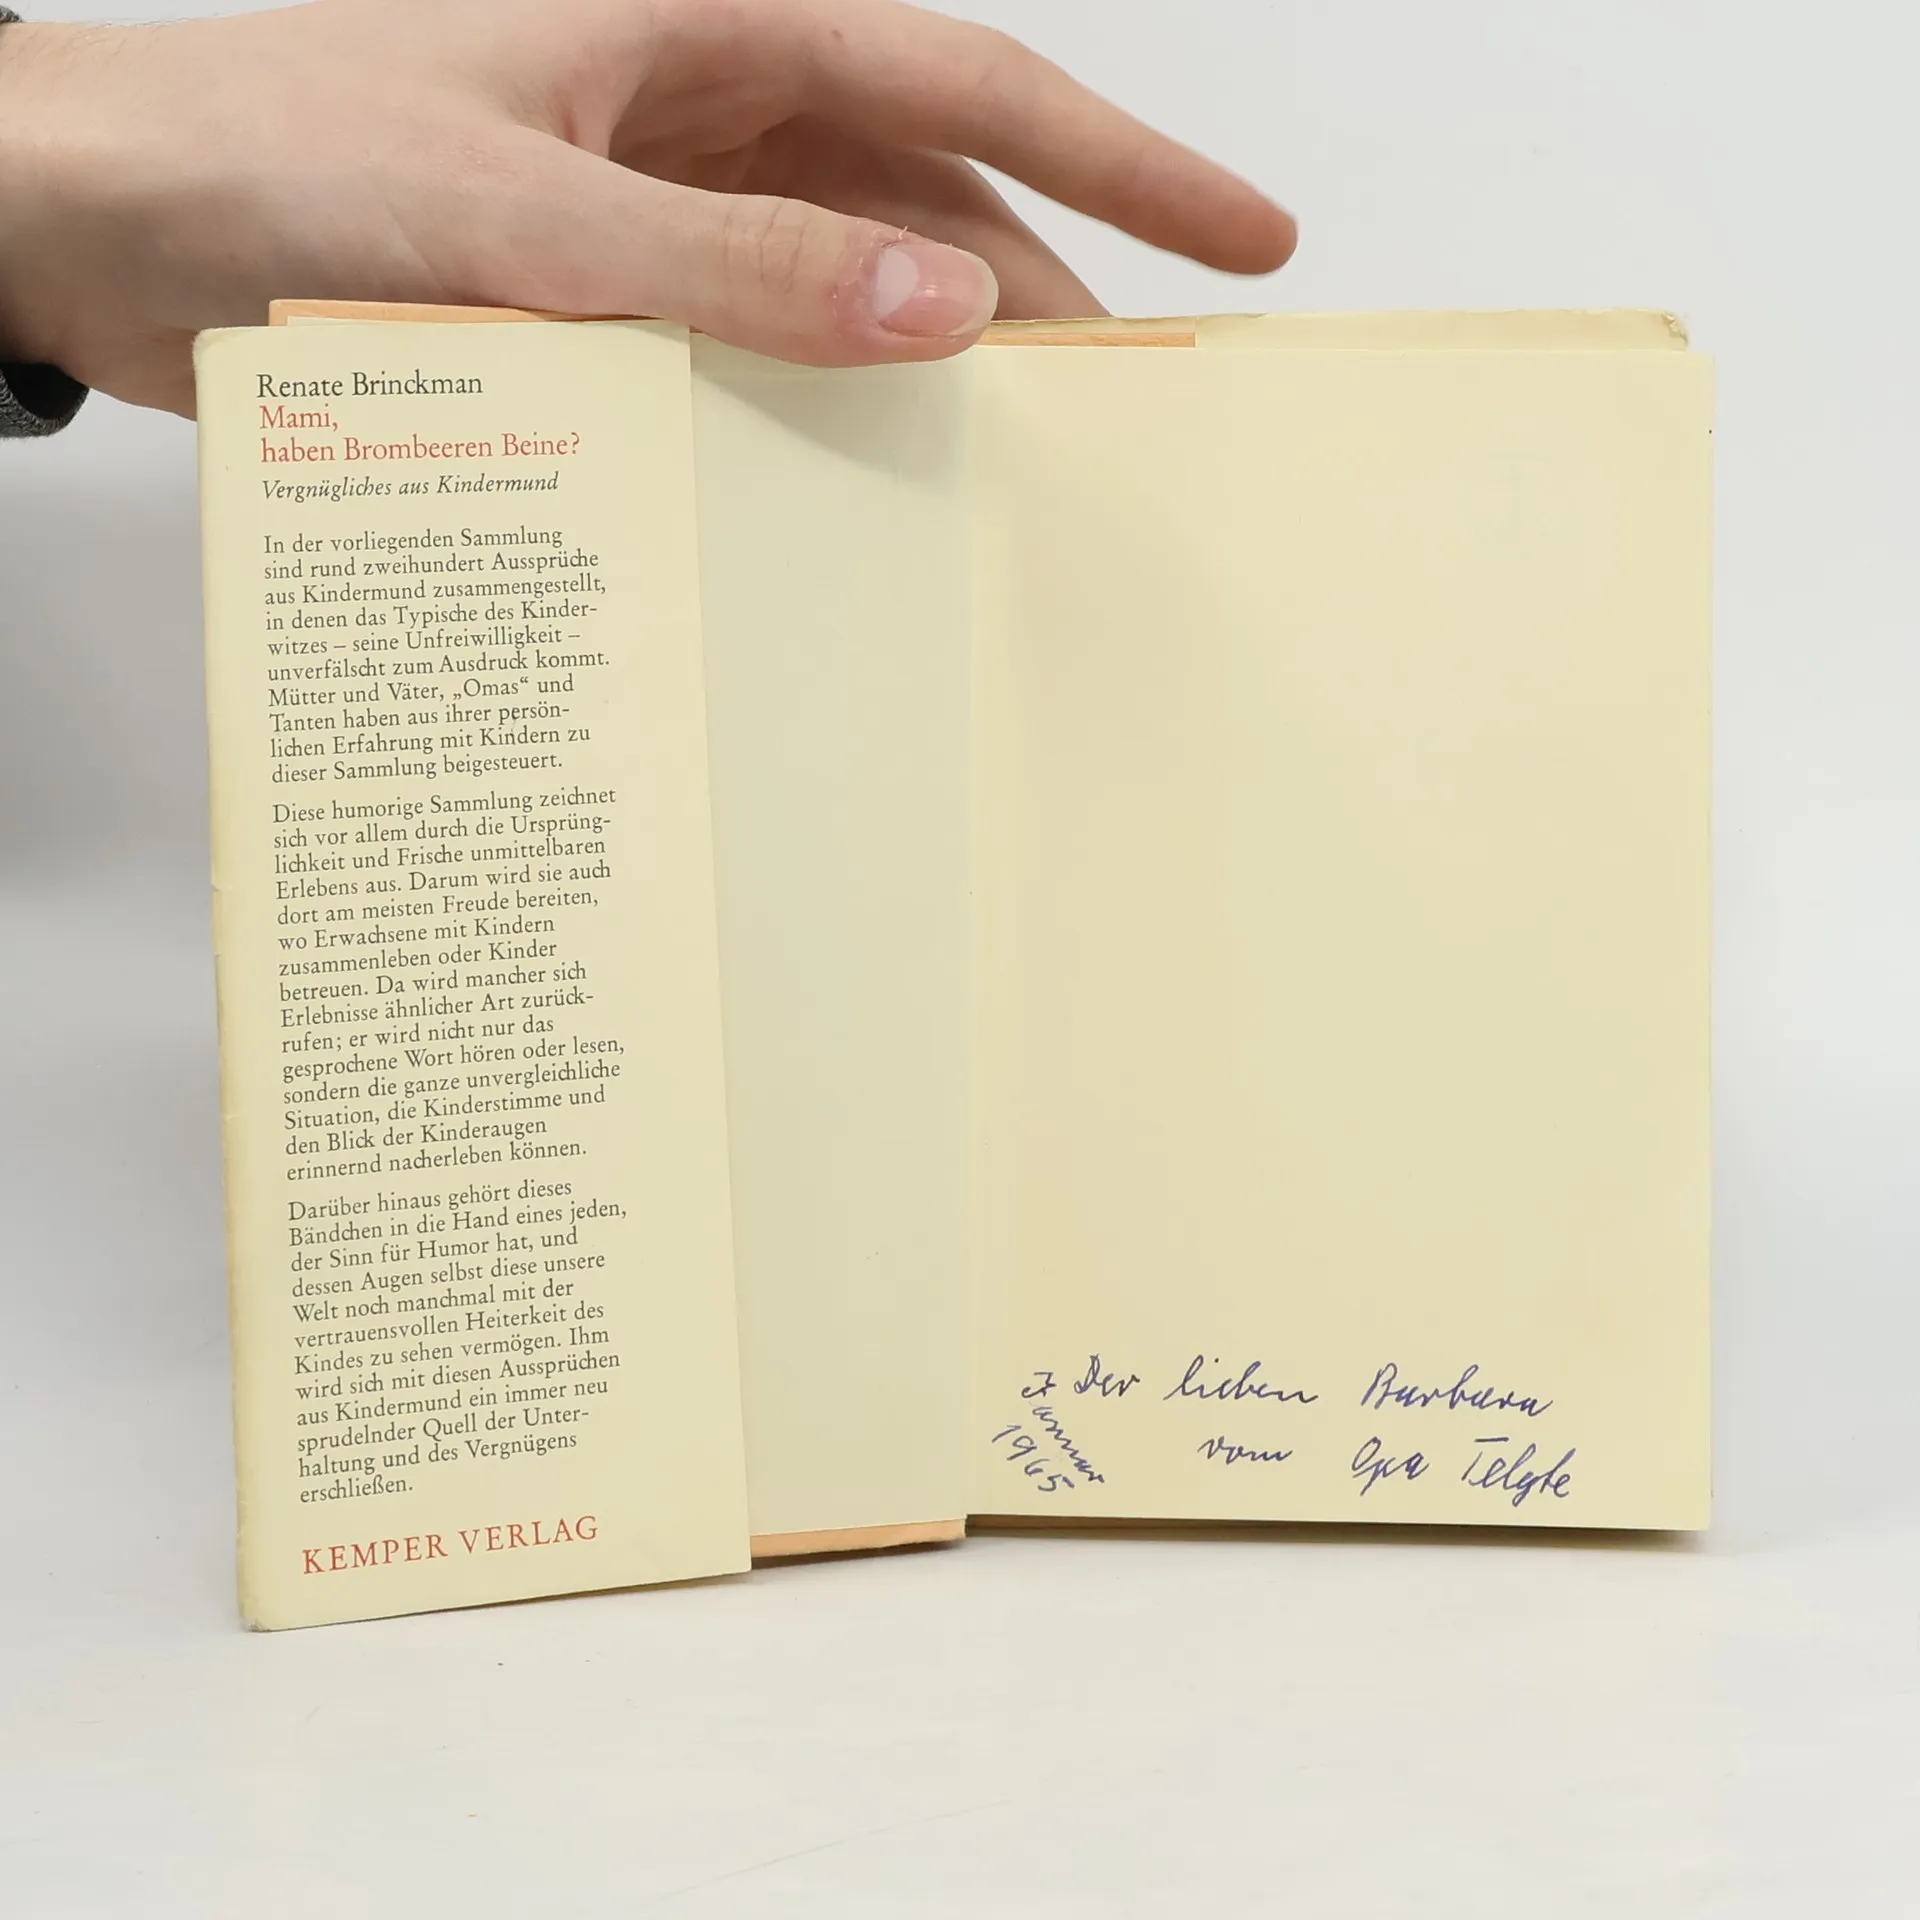 Renate Brinckman
Mami,
haben Brombeeren Beine?
Vergnügliches aus Kindermund
In der vorliegenden Sammlung
sind rund zweihundert Aussprüche
aus Kindermund zusammengestellt,
in denen das Typische des Kinder-
witzes – seine Unfreiwilligkeit –
unverfälscht zum Ausdruck kommt.
Mütter und Väter, „Omas“ und
Tanten haben aus ihrer persön-
lichen Erfahrung mit Kindern zu
dieser Sammlung beigesteuert.
Diese humorige Sammlung zeichnet
sich vor allem durch die Ursprüng-
lichkeit und Frische unmittelbaren
Erlebens aus. Darum wird sie auch
dort am meisten Freude bereiten,
wo Erwachsene mit Kindern
zusammenleben oder Kinder
betreuen. Da wird mancher sich
Erlebnisse ähnlicher Art zurück-
rufen; er wird nicht nur das
gesprochene Wort hören oder lesen,
sondern die ganze unvergleichliche
Situation, die Kinderstimme und
den Blick der Kinderaugen
erinnernd nacherleben können.
Darüber hinaus gehört dieses
Bändchen in die Hand eines jeden,
der Sinn für Humor hat, und
dessen Augen selbst diese unsere
Welt noch manchmal mit der
vertrauensvollen Heiterkeit des
Kindes zu sehen vermögen. Ihm
wird sich mit diesen Aussprüchen
aus Kindermund ein immer neu
sprudelnder Quell der Unter-
haltung und des Vergnügens
erschließen.
KEMPER VERLAG
Der lieben Barbara
vom Opa Telgte
Januar
1965